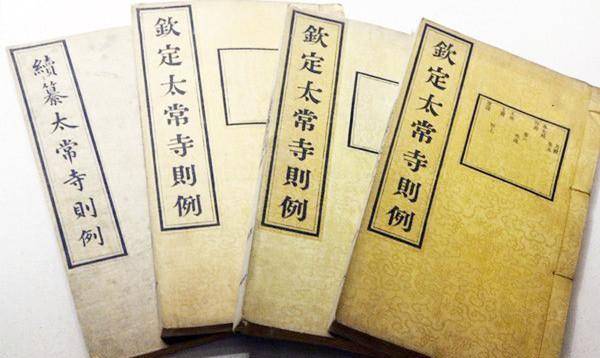 續纂太常寺則例
欽定太常寺則例
欽定太常寺則例
欽定太常寺則例